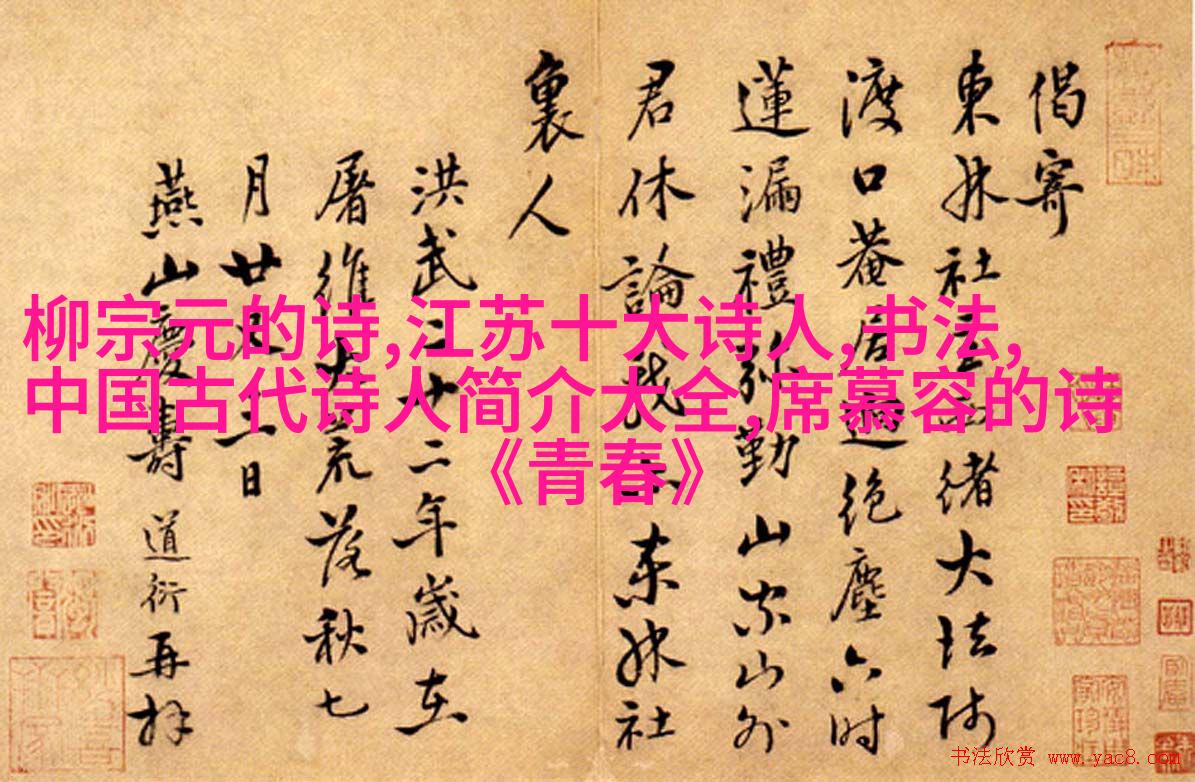 偈寄
東林社緒大法師
渡口菴居迥絕塵六時
蓮漏禮弥勤山家山外
君休論我亦東林社
裏人
洪武二十二年歲在
屠維大荒落秋七
月廿二日
燕山慶壽道衍再拜
柳宗元的诗,江苏十大诗人,书法,
中国古代诗人简介大全,席慕容的诗
《青春》
书法欣赏 www.yac8.com